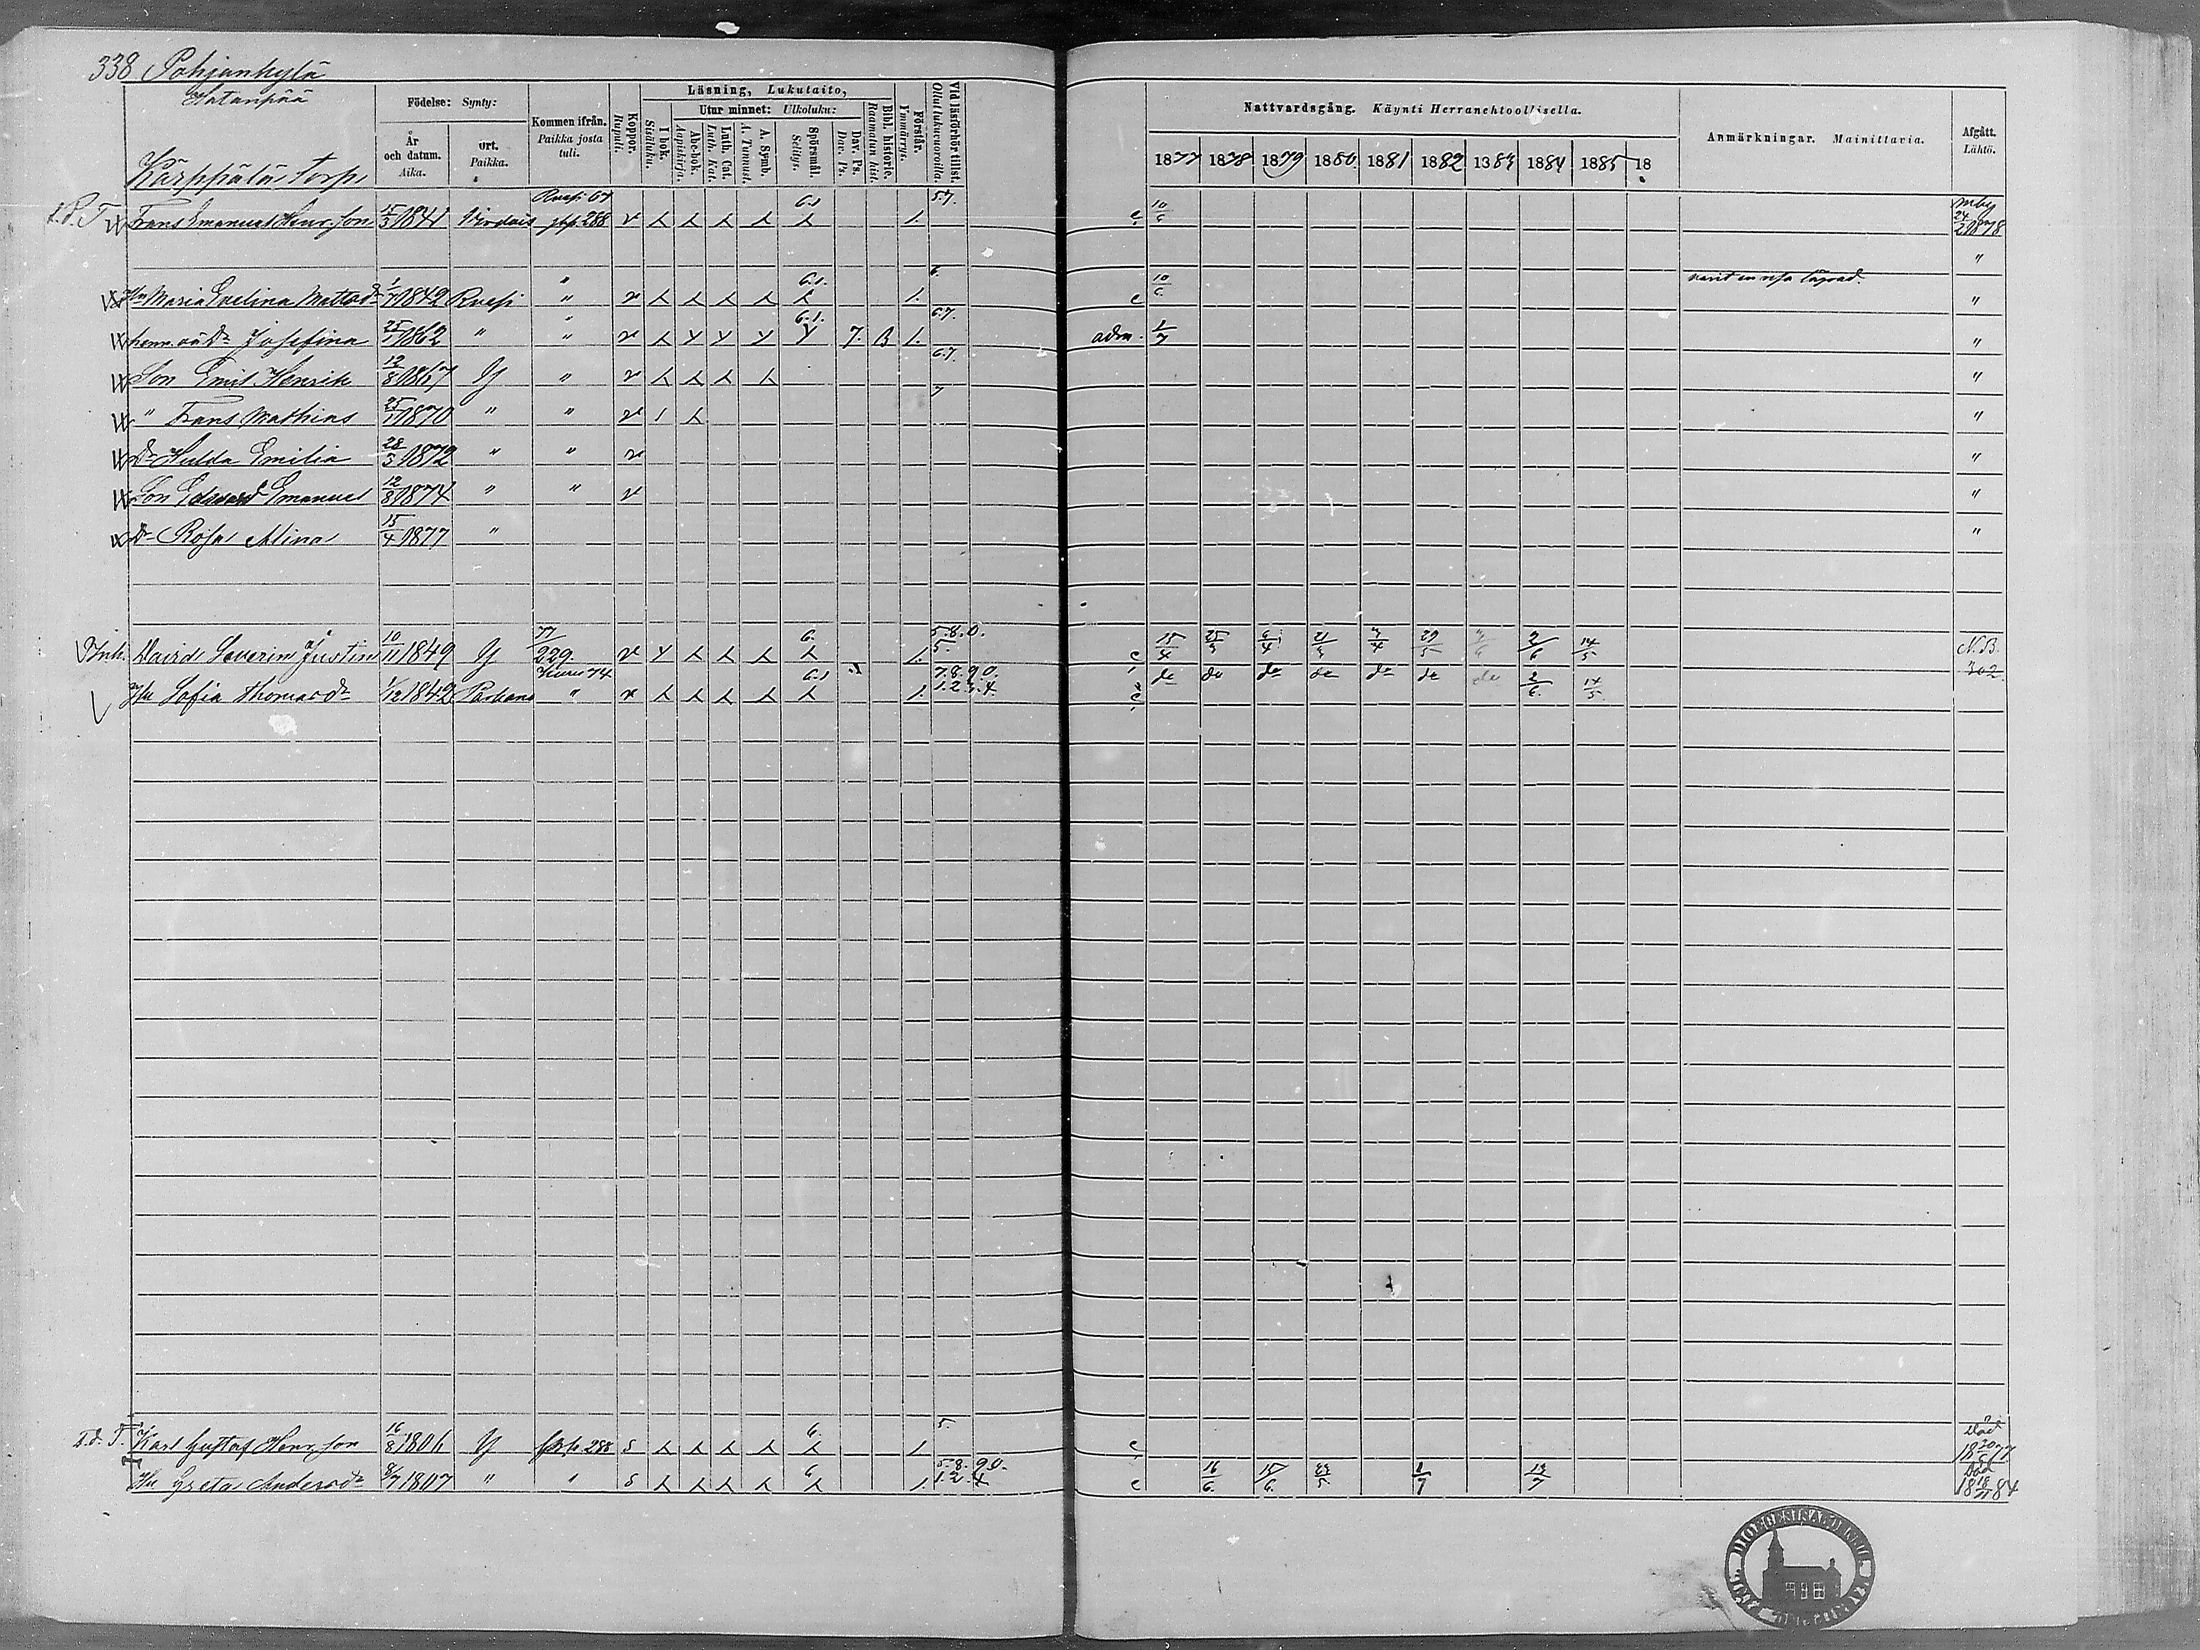 338 Pohjankylä
Hatanpää
Kärppälä torp
Födelse: Synty:
År och datum. Aika.
Ort. Paikka.
Kommen ifrån. Paikka josta tuli.
Koppor. Rupuli.
Läsning, Lukutaito,
I bok. Sisäluku.
Utur minnet: Ulkoluku:
Abc-bok. Aapiskirja.
Luth. Cat. Luth. Kat.
A. Symb. A. Tunnust.
Spörsmål. Selitys.
Dav. Ps. Dav. Ps.
Bibl. historie. Raamatun hist.
Förstår. Ymmärrys.
Vid läsförhör tillst. Ollut lukuvuoroilla.
Nattvardsgång. Käynti Herranehtoollisella.
1877 1878 1879 1880 1881 1882 1883 1884 1885 18
Anmärkningar. Mainittavia.
Afgått. Lähtö.
Frans Emanuel Henr.son 15/3 1841 Virdois 288 v 6.1 1. 5.7. c 10/6 24/2 1878
Hu Maria Evelina Mattsdr 1/7 1842 Rvesi " v 6.1. 1. 6. c 10/6 "
Josefina 25/1 1862 " " v 6.1. 7. B 1. 6.7. adm. 1/7 "
Son Emil Henrik 12/8 1867 Y " v 6.7. "
" Frans Mathias 25/1 1870 " " v 7 "
Dr Hulda Emilia 28/3 1872 " " v "
Son Edvard Emanuel 12/8 1874 " " v "
Dr Rosa Alina 15/4 1877 " "
Inh. David Severin Justin 10/11 1849 Y 77/229 v 6. 1. 5.8.0. 5. c 15/4 25/3 21/3 29/5 2/6 14/5 N.B. 302
Hu Sofia Thomasdr 1/12 1842 Parkano " v 6.1 1. 7.8.9.0. 1.2.3.4. c do do do do do do do 2/6 14/5
Karl Gustaf Henr.son 16/8 1806 Y 288 s 6. 1. 5. c Död 18 77
Hu Greta Andersdr 8/7 1807 " " s 6 1. 5.8.9.0. 1.2.4 c 16/6 15/6 23/5 1/7 13/7 Död 18 84